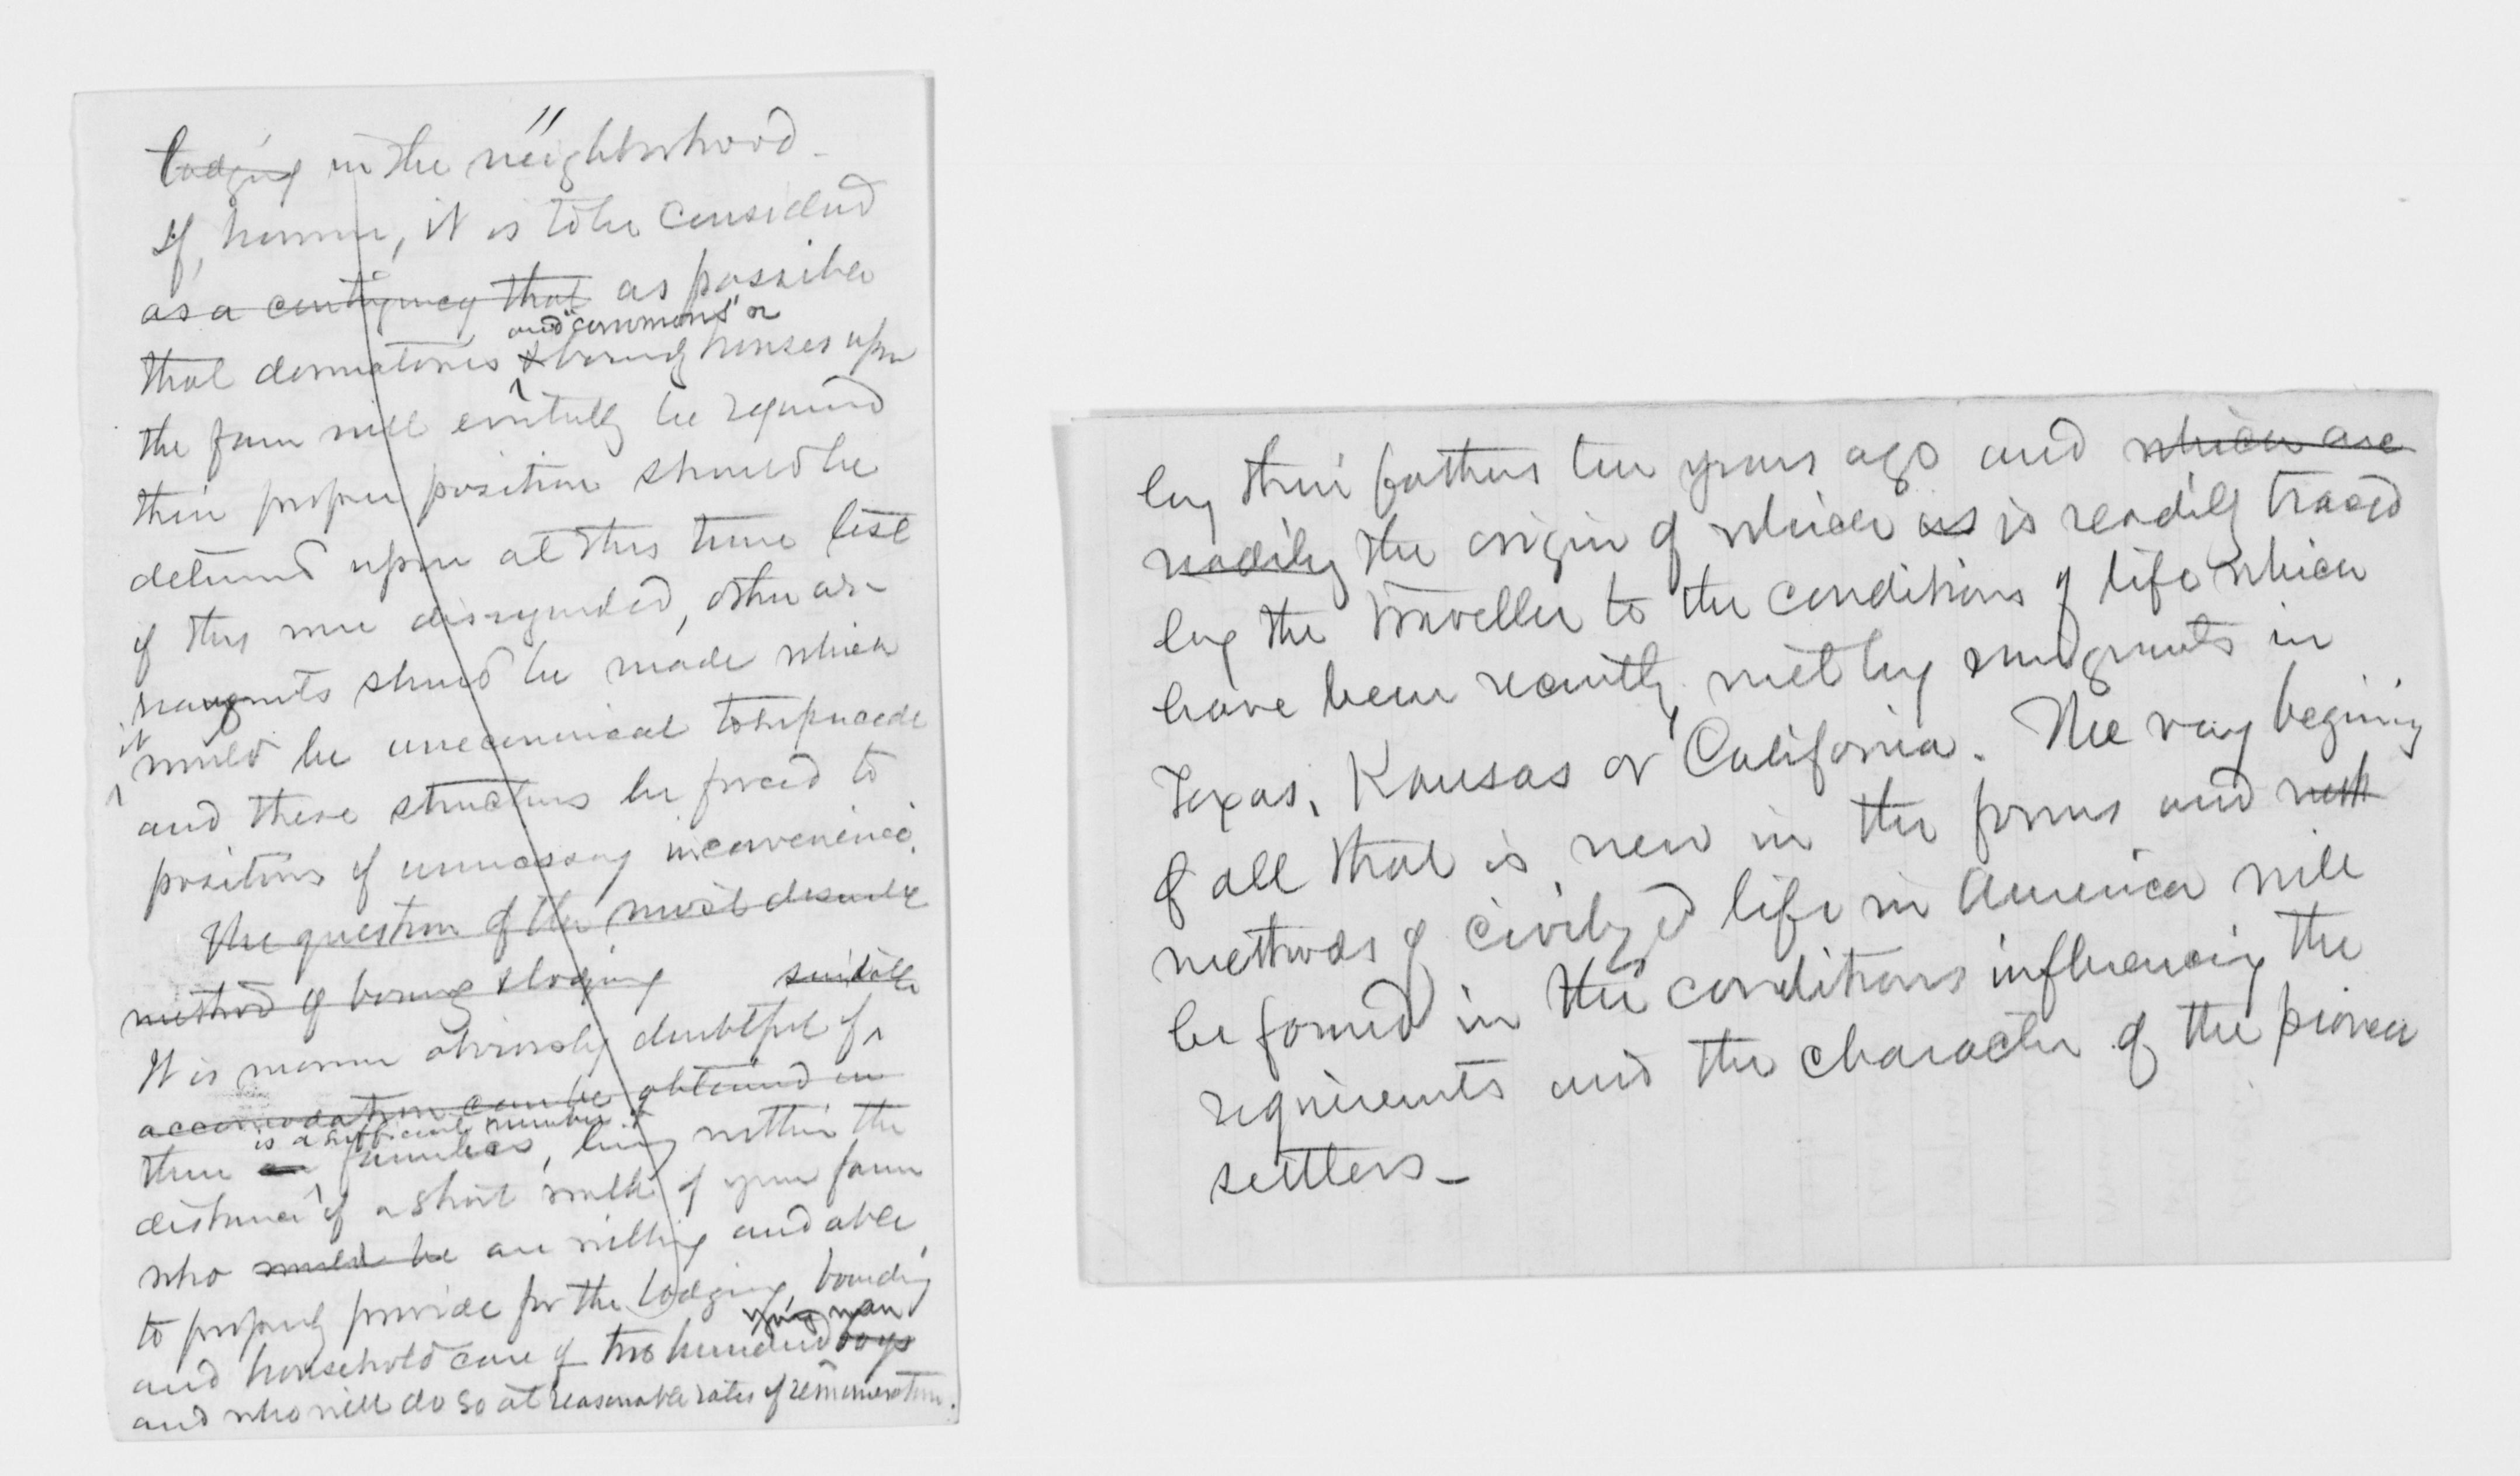 11
lodging in the neighborhood.
If, however, it is to be considered
as a contingency that as possible
and "commons" or
that dormatories & boarding houses upon
the farm will eventually be required
their proper position should be
determined upon at this time lest
if they were disregarded, other ar-
rangements should be made which
it would be uneconomical to supercede
and these structures be forced to
positions of unnecessary inconvenience.
The question of the most desirable
method of boarding & lodging suitable
It is moreover obviously doubtful if
accomodation can be obtained in
is a sufficient number of
there are families, living within the
distance of a short walk of your farm
who would be are willing and able
to properly provide for the lodging, boarding
young men
and household care of two hundred boys
and who will do so at reasonable rates of remuneration.
by their fathers ten years ago and which are
readily the origin of which as is readily traced
by the traveller to the conditions of life which
have been recently met by emigrants in
Texas, Kansas or California. The very begining
of all that is new in the forms and
methods of civilized life in America will
be found in the conditions influencing the
requirements and the character of the pioneer
settlers_